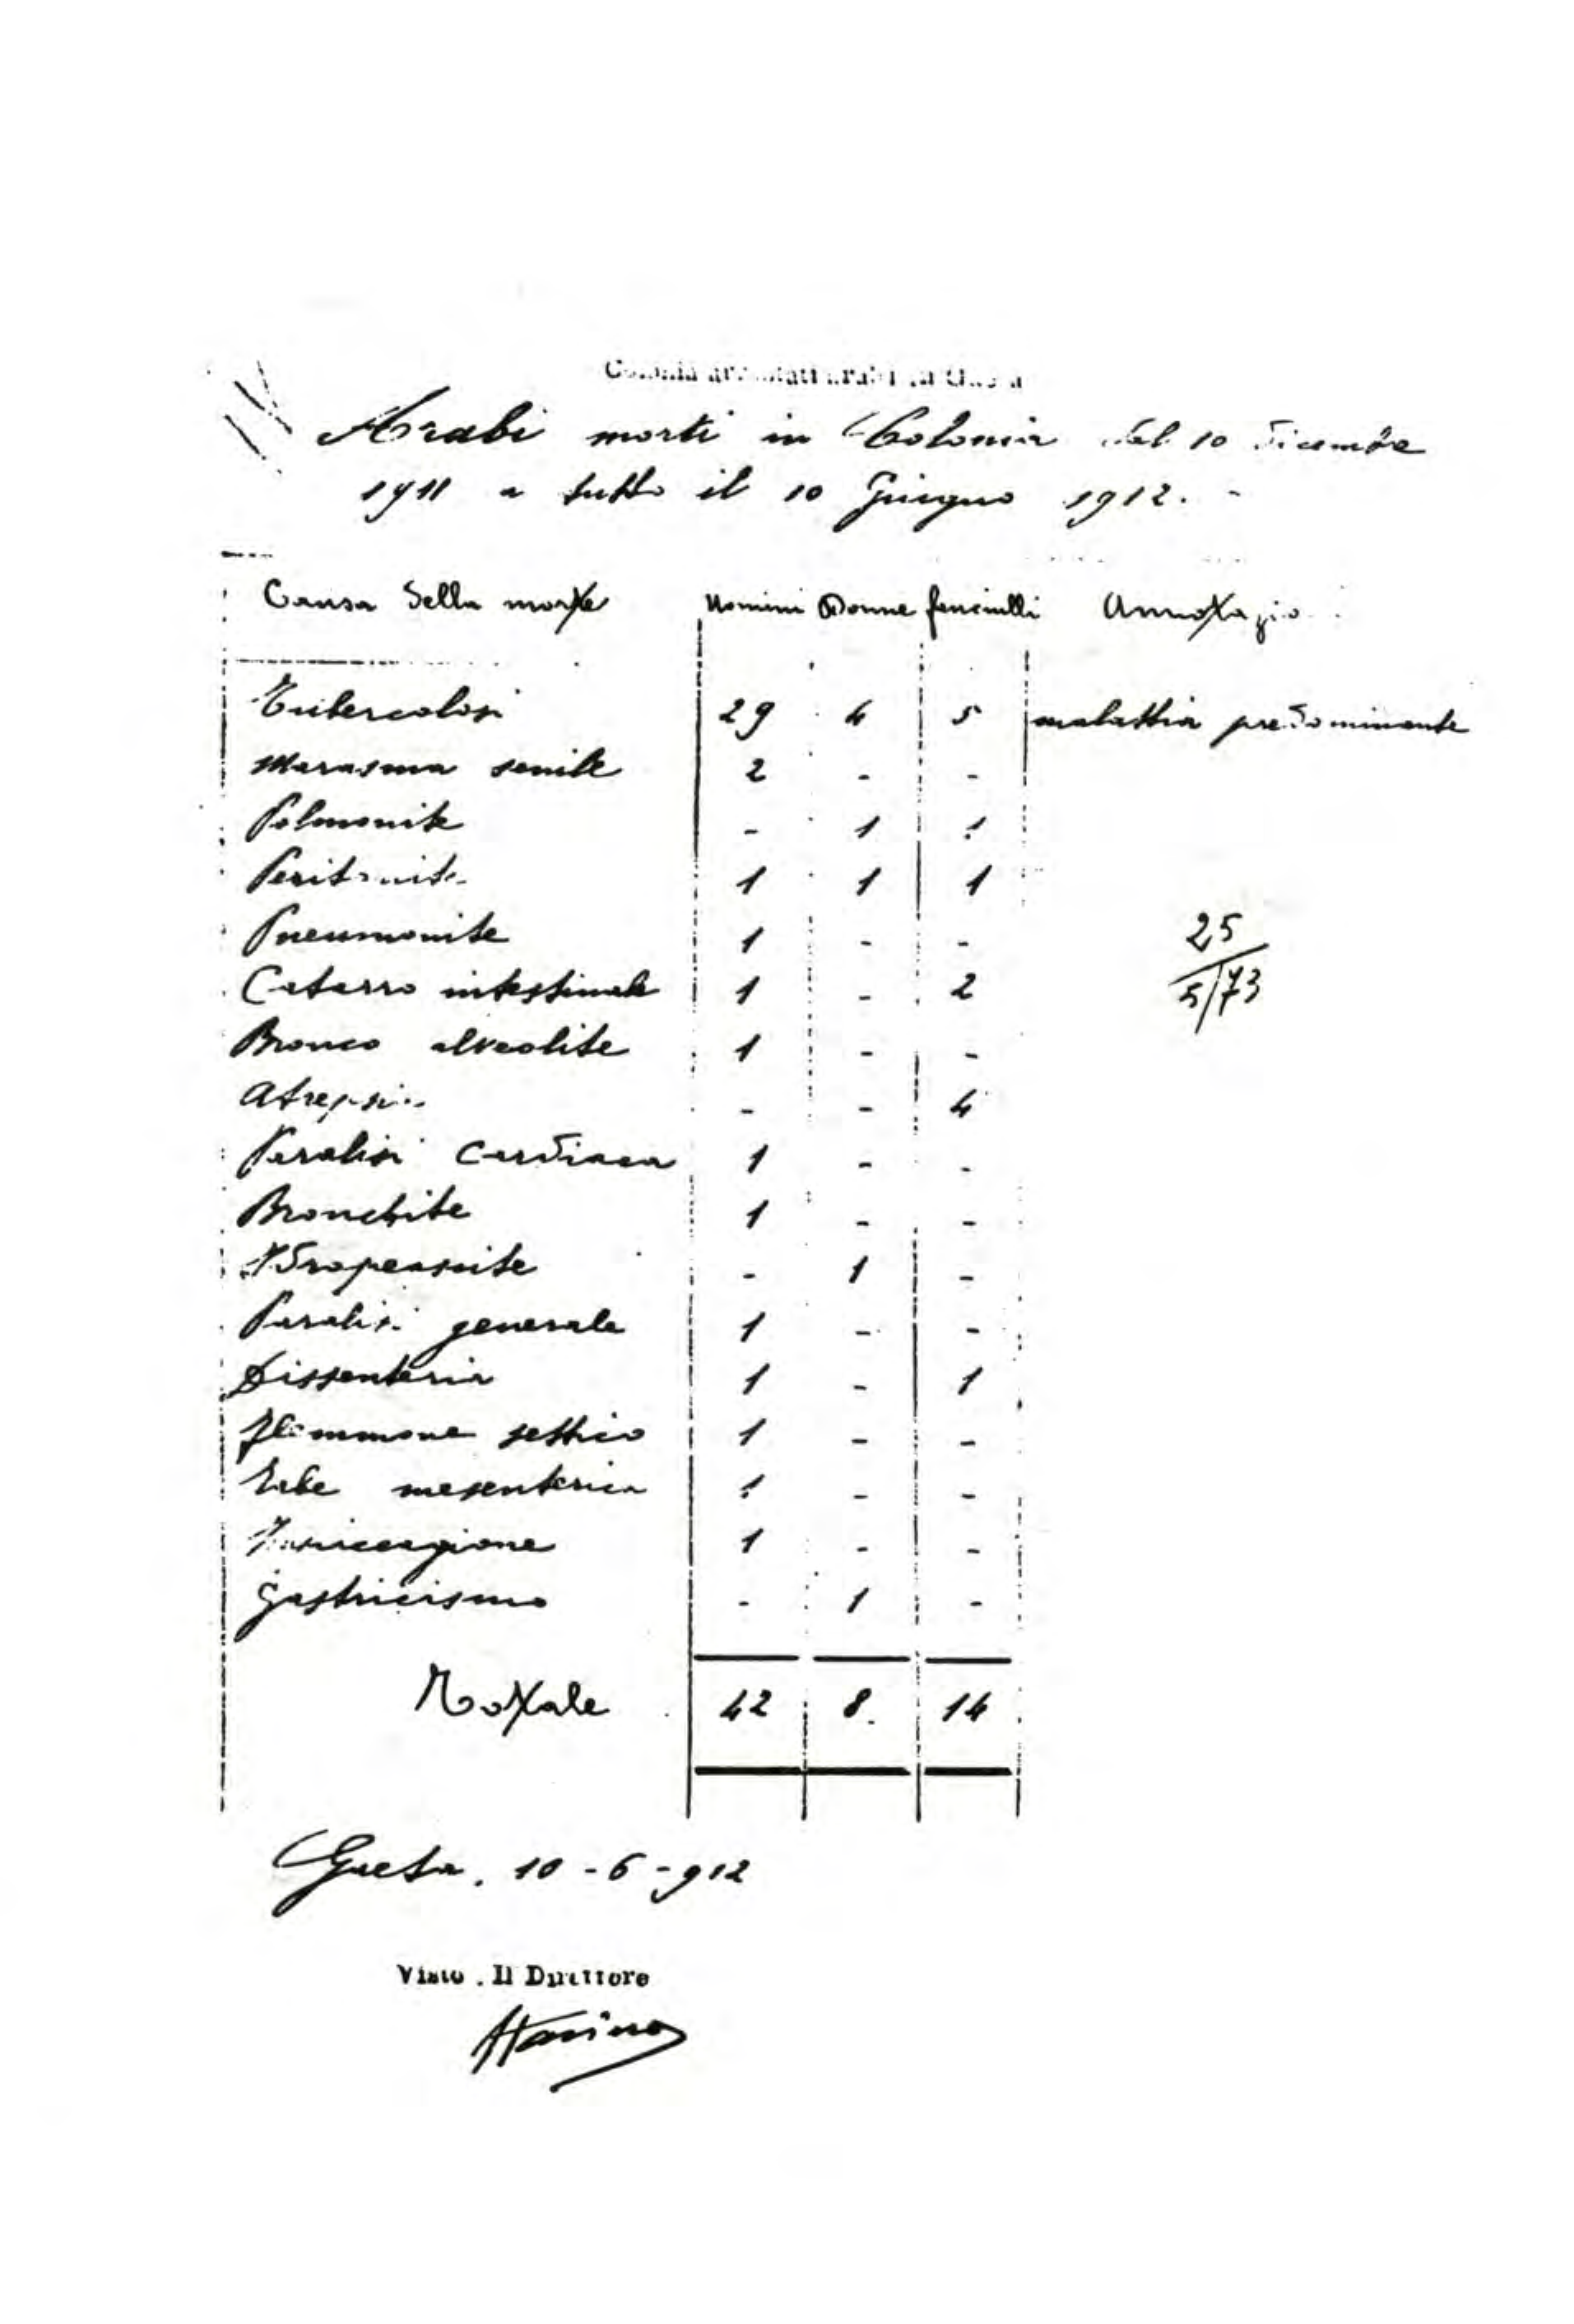 Colonia arrestati arabi in Gaeta
Arabi morti in Colonia dal 10 Dicembre
1911 a tutto il 10 Giugno 1912. -
Causa della morte Uomini Donne fanciulli Annotazio
Tubercolosi 29 4 5 malattia predominante
Marasma senile 2 - -
Polmonite - 1 1
Peritonite 1 1 1
Pneumonite 1 - -
25
5/73
Catarro intestinale 1 - 2
Bronco alveolite 1 - -
Atrepsia - - 4
Paralisi Cardiaca 1 - -
Bronchite 1 - -
- 1 -
Paralisi generale 1 - -
Dissenteria 1 - 1
Flemmone settico 1 - -
Tabe mesenterica 1 - -
1 - -
Gastricismo - 1 -
Totale 42 8. 14
Gaeta. 10-6-912
Visto. Il Direttore